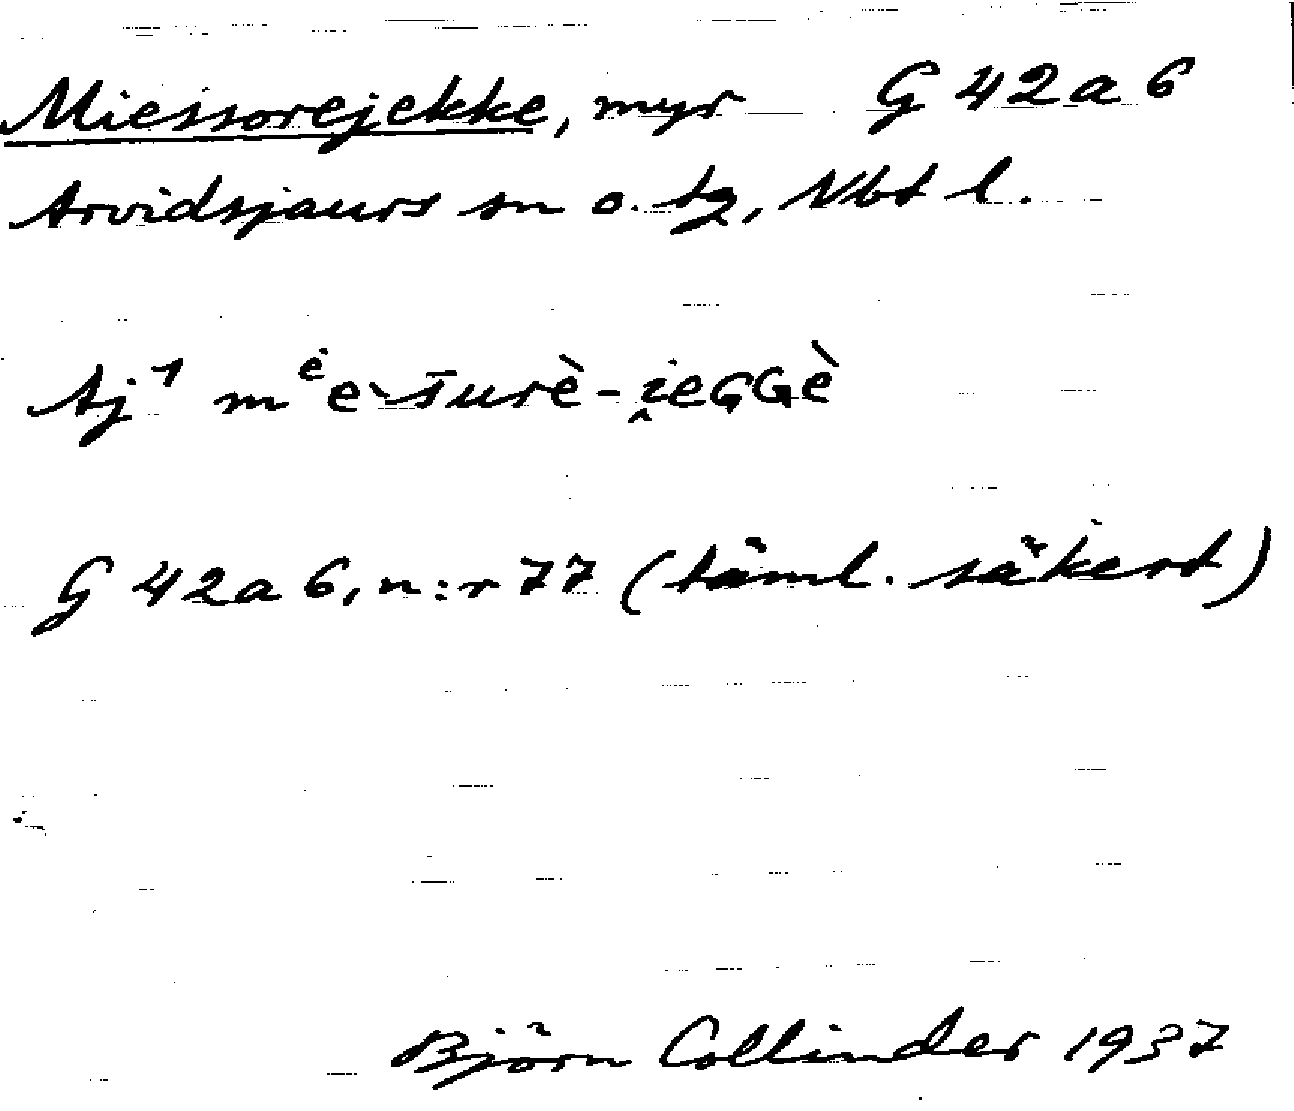 Miessorejekke, myr G 42a 6
Arvidsjaurs sn o. tg, Nbt l.
Aj¹ mėe`s̄urè-i̭eGGè
G 42a 6, n:r 77 (täml. säkert)
Björn Collinder 1937